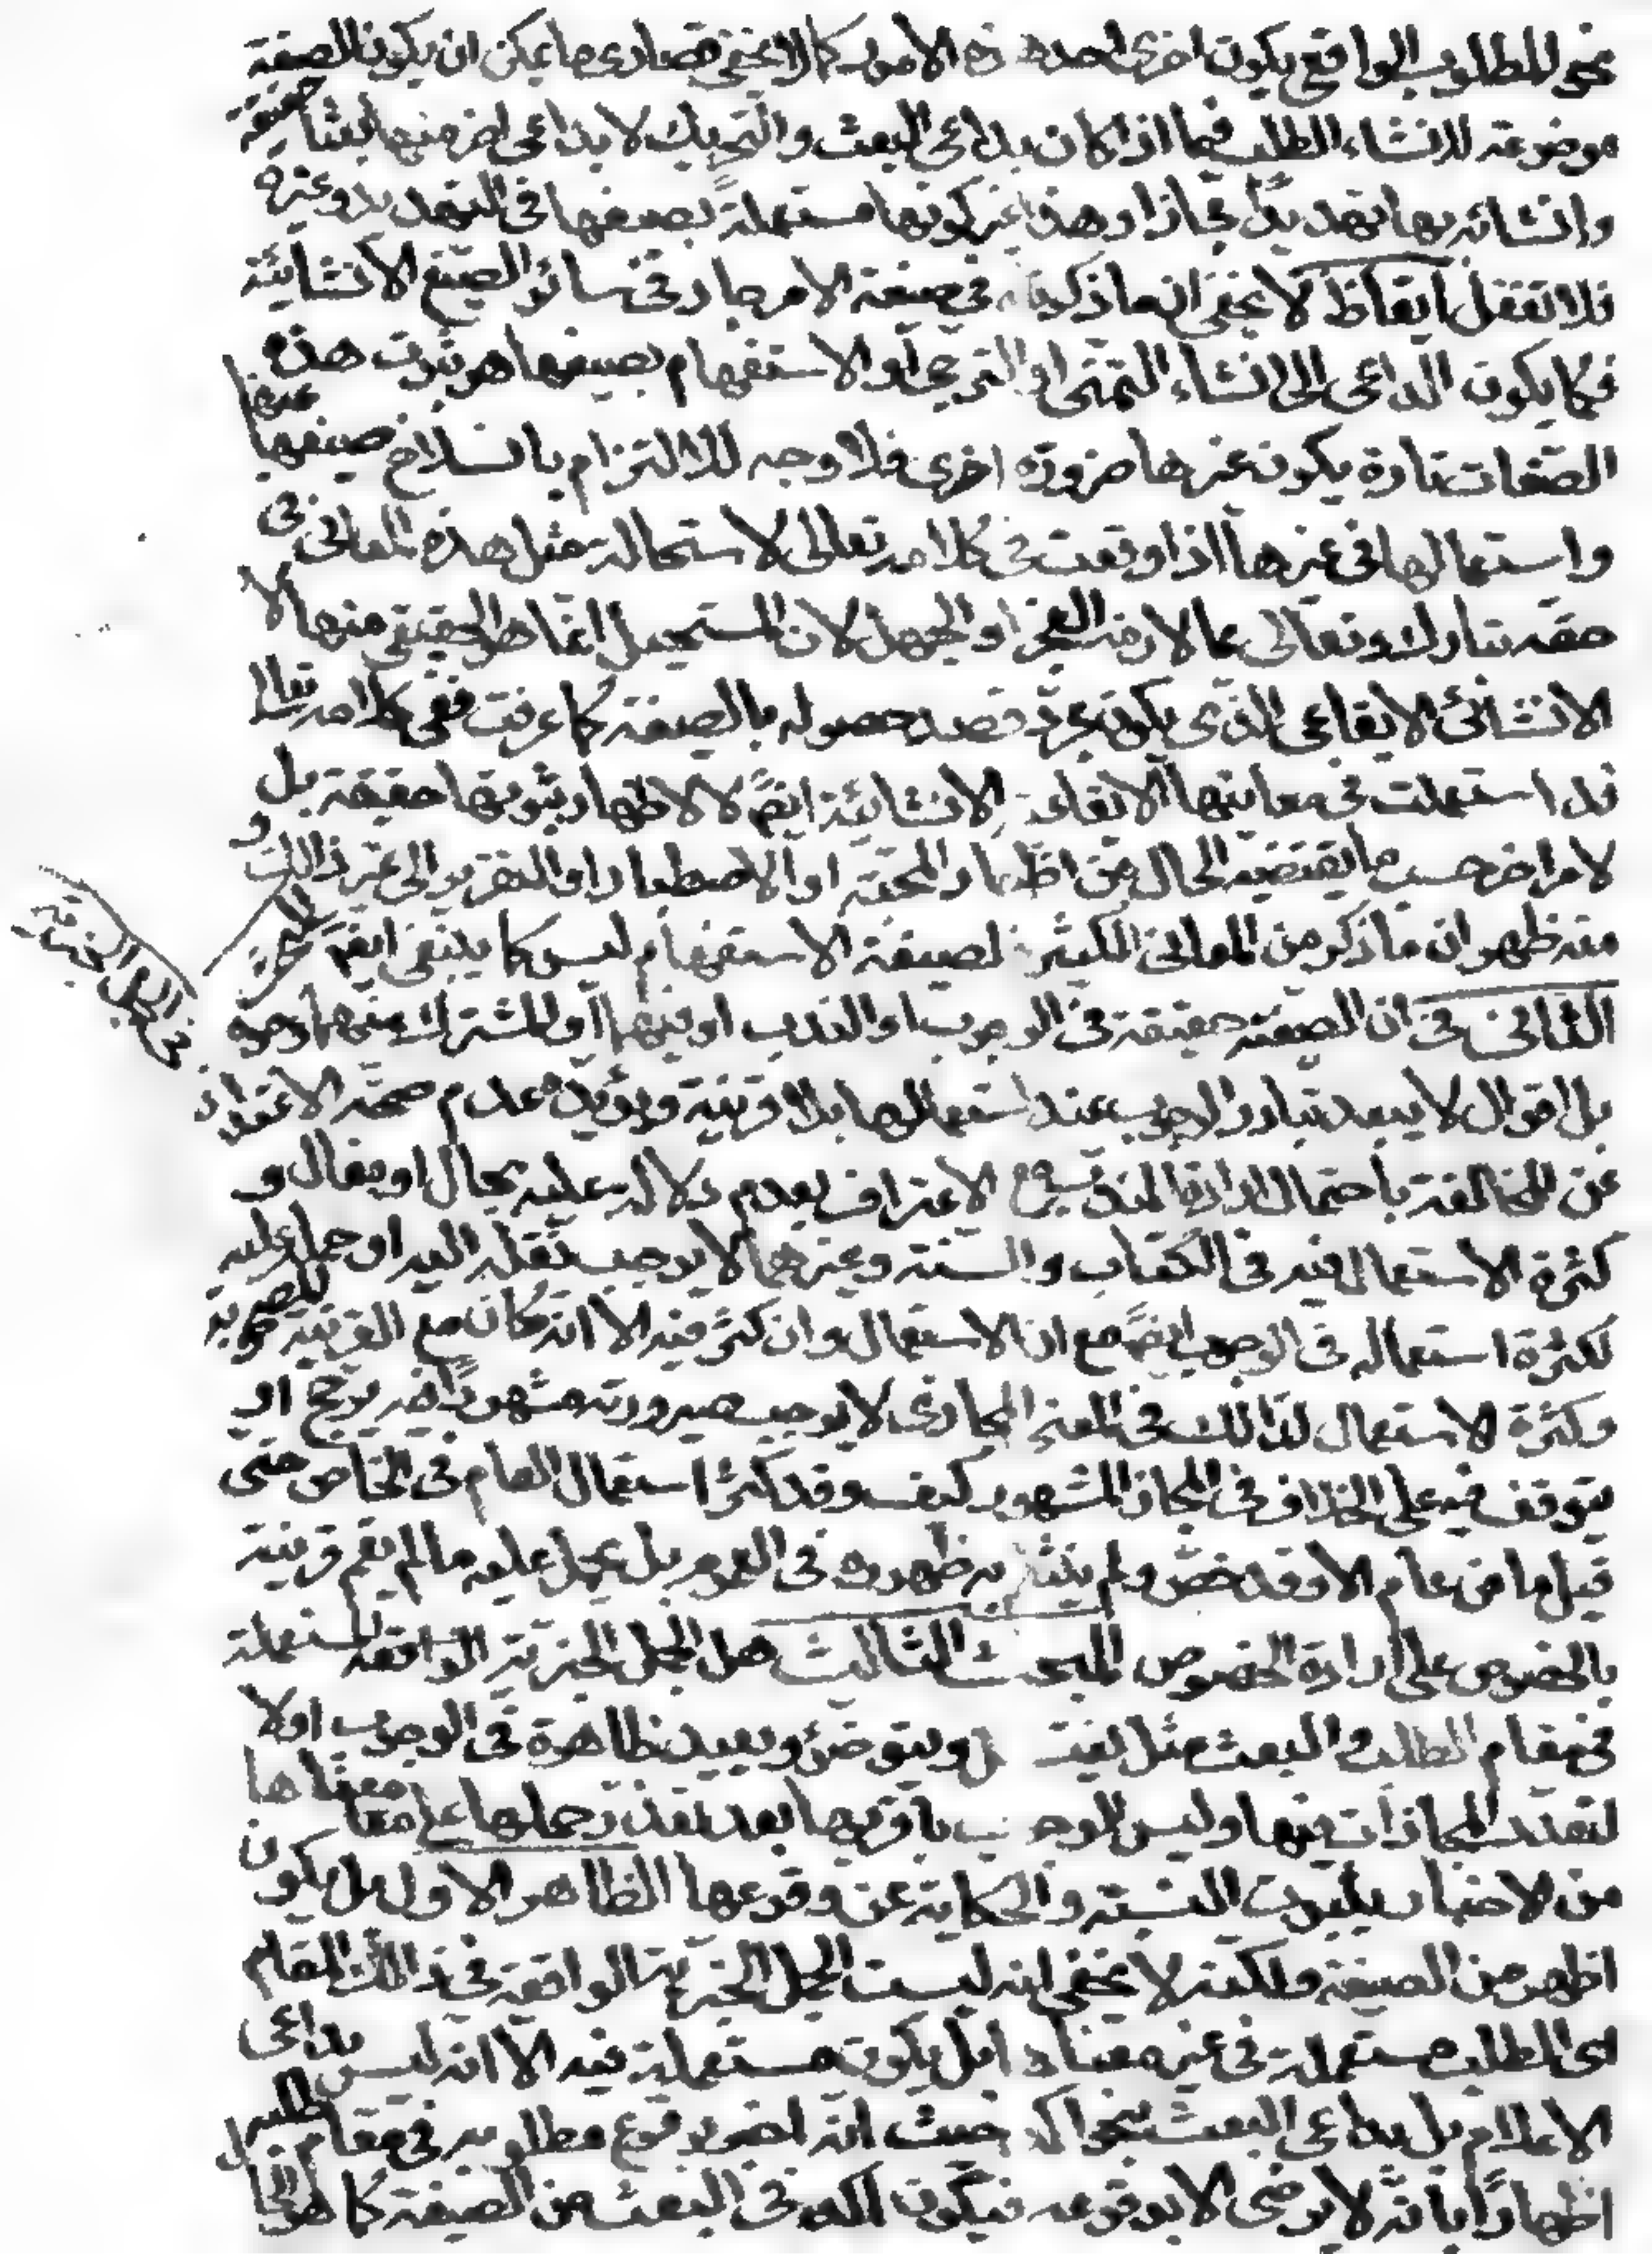 نحو المطلوب الواقعي يكون اخرى احد هذه الامور كما لا يخفى قصارى ما يمكن ان يكون الصيغة
موضوعة لانشاء الطلب فيما اذا كان بداعى البعث والتحريك لا بداعى اخر منها انشاء حقيقة
وانشائه بها تهديدا مجازا وهذا غير كونها مستعملة بصيغها فى التهديد وغيره
فلا تغفل ايقاظ لا يخفى ان ما ذكرناه فى صيغة الامر جار فى سائر الصيغ الانشائية
فكما يكون الداعى الى انشاء التمنى او الترجى او الاستفهام بصيغها هو ثبوت هذه
الصفات تارة يكون غيرها ضرورة اخرى فلا وجه للالتزام بانسلاخ صيغها عنها
واستعمالها فى غيرها اذا وقعت فى كلامه تعالى لاستحالة مثل هذه المعانى فى
حقه تبارك وتعالى مما لازمه العجز او الجهل لان المستحيل انما هو الحقيقى منها لا
الانشائى الايقاعى الذى يكون بمجرد قصد حصوله بالصيغة كما عرفت ففى كلامه تعالى
قد استعملت فى معانيها الايقاعية الانشائية ايضً لا لاظهار ثبوتها حقيقة بل
لامر اخر حسب ما يقتضيه الحال من اظهار المحبة او الاضطرار او التقرير الى غير ذالك و
منه ظهر ان ما ذكر من المعانى الكثيرة لصيغة الاستفهام ليس كما ينبغى ايضً المبحث
الثانى فى ان الصيغة حقيقة فى الوجوب او الندب او فيهما او المشترك بينهما وجوه
بل اقوال لا يبعد تبادر الوجوب عند استعمالها بلا قرينة ويؤيده عدم صحة الاعتذار
عن المخالفة باحتمال ارادة الندب مع الاعتراف بعدم دلالته عليه بحال او مقال و
كثرة الاستعمال فيه فى الكتاب والسنة وغيرهما لا يوجب نقله اليه او حمله عليه
لكثرة استعماله فى الوجوب ايضً مع ان الاستعمال وان كثر فيه الا انه كان مع القرينة المصحوبة
وكثرة الاستعمال كذالك فى المعنى المجازى لا يوجب صيرورته مشهورًا فيه يرجح او
يتوقف فيه على الخلاف فى المجاز المشهور كيف وقد كثر استعمال العام فى الخاص حتى
قيل ما من عام الا وقد خص ولم ينثلم به ظهوره فى العموم بل يحمل عليه ما لم يقم قرينة
بالخصوص على ارادة الخصوص المبحث الثالث هل الجمل الخبرية الواقعة المستعملة
فى مقام الطلب والبعث مثل يغتسل ويتوضئ ويعيد ظاهرة فى الوجوب او لا
لتعدد المجازات فيها وليس الوجوب باقربها بعد تعذر حملها على معناها
من الاخبار بثبوت النسبة والحكاية عن وقوعها الظاهر الاول بل يكون
اظهر من الصيغة ولكنه لا يخفى انه ليست الجمل الخبرية الواقعة فى ذالك المقام
اى الطلب مستعملة فى غير معناه ا بل يكون مستعملة فيه الا انه ليس بداعى
الاعلام بل بداعى البعث بنحو اكد حيث انه اخبر بوقوع مطلوبه فى مقام الطلب
اظهارًا بانه لا يرضى الا بوقوعه فيكون اكد فى البعث من الصيغة كما هو الحال
فى الجمل الخبرية